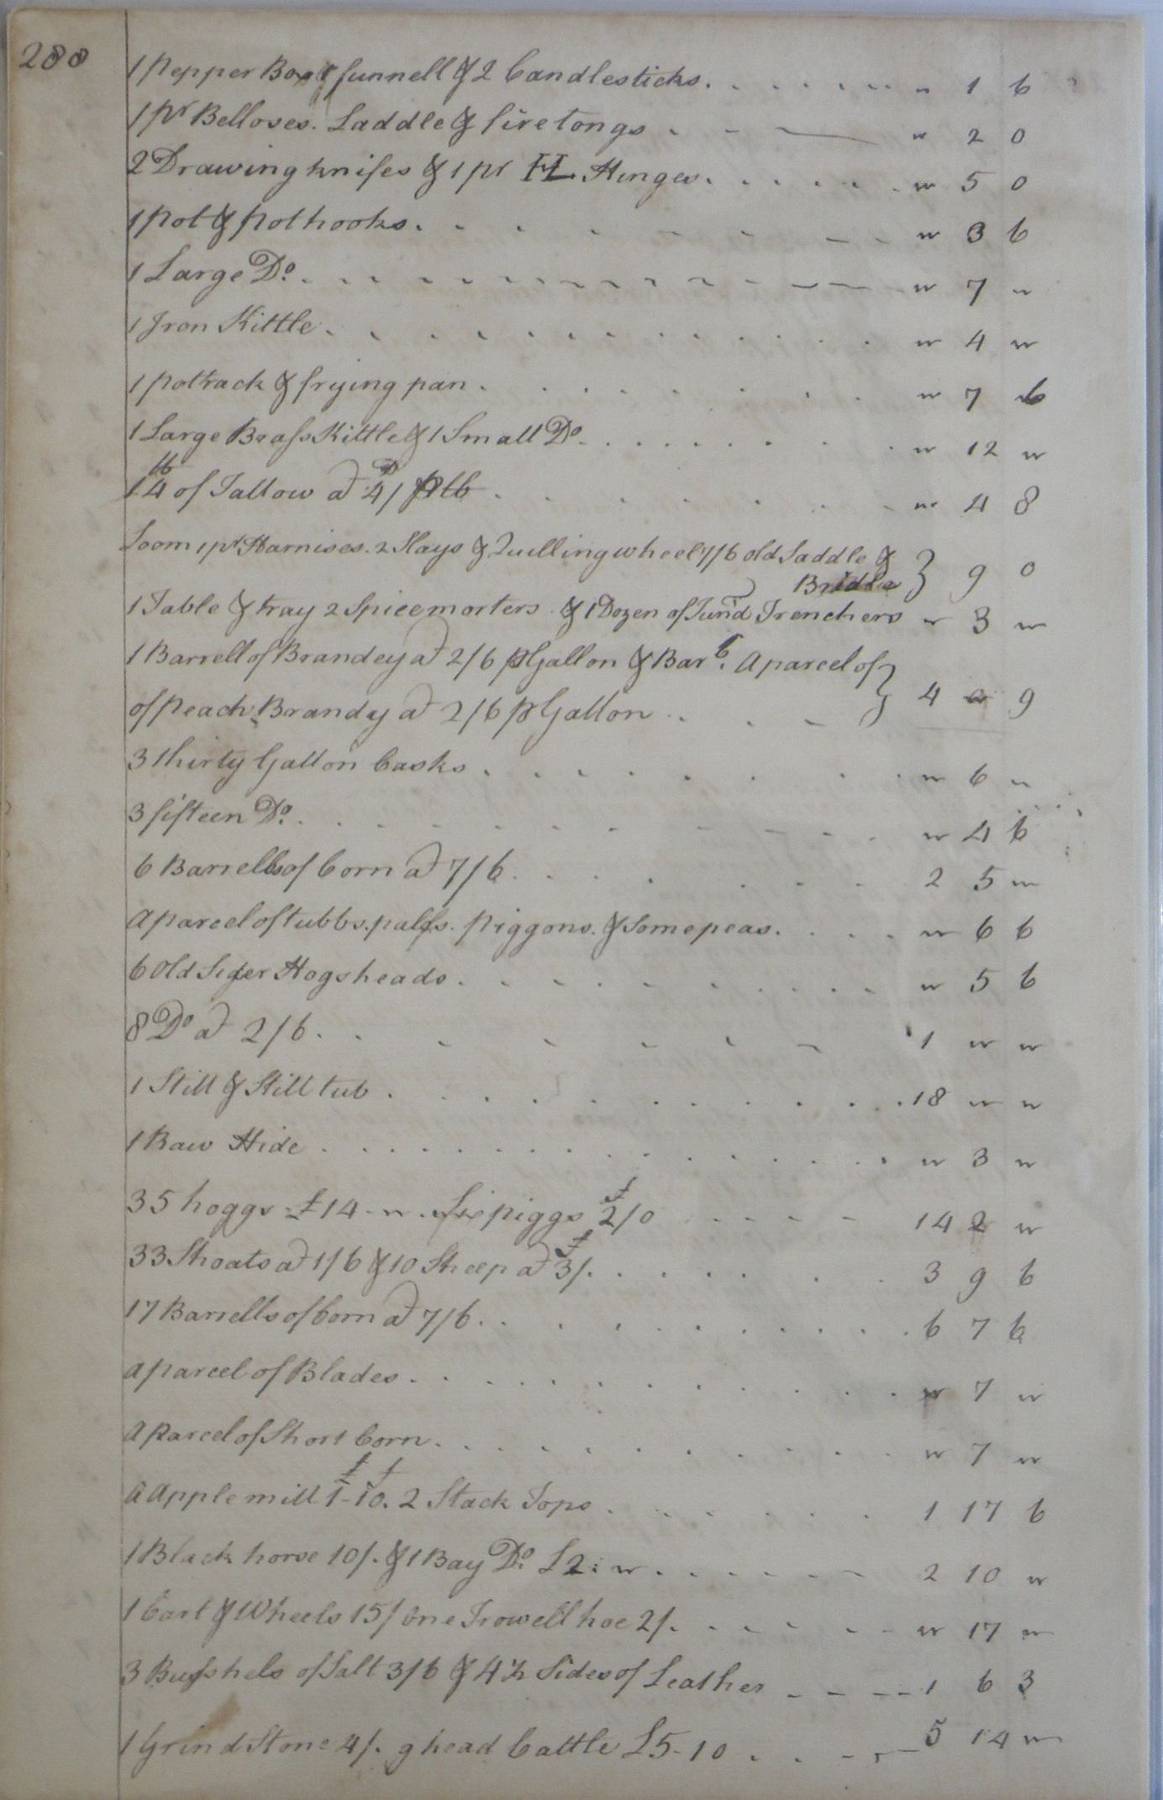 288
1 Pepper Box 1 funnell & 2 Candlesticks. . . . . . . " 1 6
1 pr Belloses. Laddle & fire tongs . - — " 2 0
2 Drawing knifes & 1 pr HL Hinges. . . . . . " 5 0
1 Pot & pothooks. . . . . . . . " 3 6
1 Large Do. . . . . . . . . " 7 "
1 Iron Kittle. . . . . . . . . " 4 "
1 pottrack & frying pan. . . . . . . " 7 6
1 Large Brass Kittle & 1 Small Do. . . . . . . " 12 "
14 lb of Tallow a 4D/ p lb . . . . . . " 4 8
Loom 1 pr Harnises. 2 Slays & Quilling wheel 7/6 old Saddle &
Bridle } 9 0
1 Table & tray 2 Spice morters & 1 Dozen of Turn'd Trenchers " 3 "
1 Barrell of Brandey a 2/6 p Gallon & Bar. 6. A parcel of
of Peach Brandy a 2/6 p Gallon . . . } 4 " 9
3 thirty Gallon Casks . . . . . . . " 6 "
3 fifteen Do. . . . . . . . . " 4 6
6 Barrells of Corn a 7/6 . . . . . . . 2 5 "
A parcel of tubbs. pails. Piggons. & Some peas. . . . . " 6 6
6 Old Sider Hogsheads. . . . . . . . " 5 6
8 Do a 2/6. . . . . . . 1 " "
1 Still & Still tub . . . . . . . . . 18 " "
1 Raw Hide . . . . . . . . . " 3 "
35 hoggs £14 - " . Six piggs £2/0 . . . . - 14 2 "
33 Shoats a 1/6 & 10 Sheep a £3/. . . . . . . 3 9 6
17 Barrells of Corn a 7/6. . . . . . . . . 6 7 6
A parcel of Blades. . . . . . . . . " 7 "
A Parcel of Short Corn. . . . . . . . . " 7 "
A Apple mill £1-10. 2 Stack Tops . . . . . . 1 17 6
1 Black horse 10/. & 1 Bay Do. £2 : " . . . . . . 2 10 "
1 Cart & Wheels 15/ One Trowell hoe 2/. . . . . . " 17 "
3 Busshels of Salt 3/6 & 4½ Sides of Leather - - - - 1 6 3
1 Grind Stone 4/. 9 head Cattle £5-10 . . . - - 5 14 "